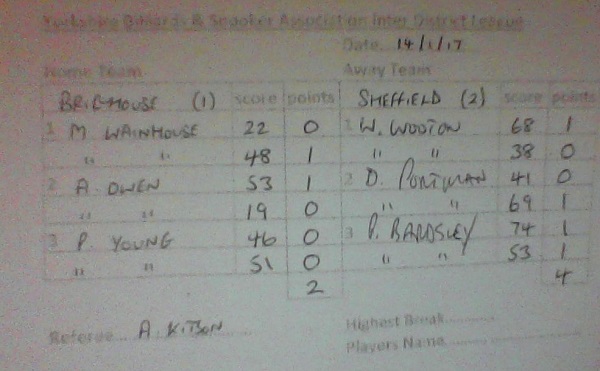 Yorkshire Billiards & Snooker Association Inter District League
Date 14/1/17
Home Team Away Team
BRIGHOUSE (1) score points SHEFFIELD (2) score points
1 M WAINHOUSE 22 0 1 W. WOOTON 68 1
" " 48 1 " " 38 0
2 A OWEN 53 1 2 D. PORTMAN 41 0
" " 19 0 " " 69 1
3 P. YOUNG 46 0 3 P. BARDSLEY 74 1
" " 51 0 " " 53 1
2 4
Referee... A. KITSON Highest Break............
Players Name............